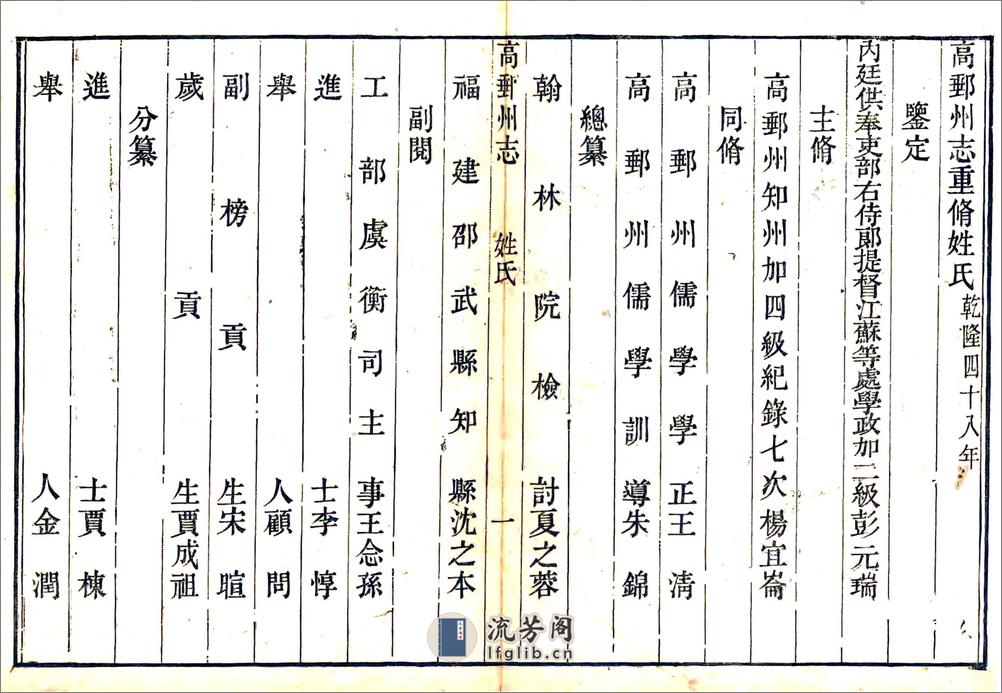 高郵州志重脩姓氏乾隆四十八年
鑒定
內廷供奉吏部右侍郞提督江蘇等處學政加二級彭元瑞
主脩
高郵州知州加四級紀錄七次楊宜崙
同脩
高郵州儒學學正王淸
高郵州儒學訓導朱錦
總纂
翰林院檢討夏之蓉
高郵州志 姓氏 一
福建邵武縣知縣沈之本
副閱
工部虞衡司主事王念孫
進士李惇
舉人顧問
副榜貢生宋暄
歲貢生賈成祖
分纂
進士賈棟
舉人金潤
流芳阁
lfglib.cn